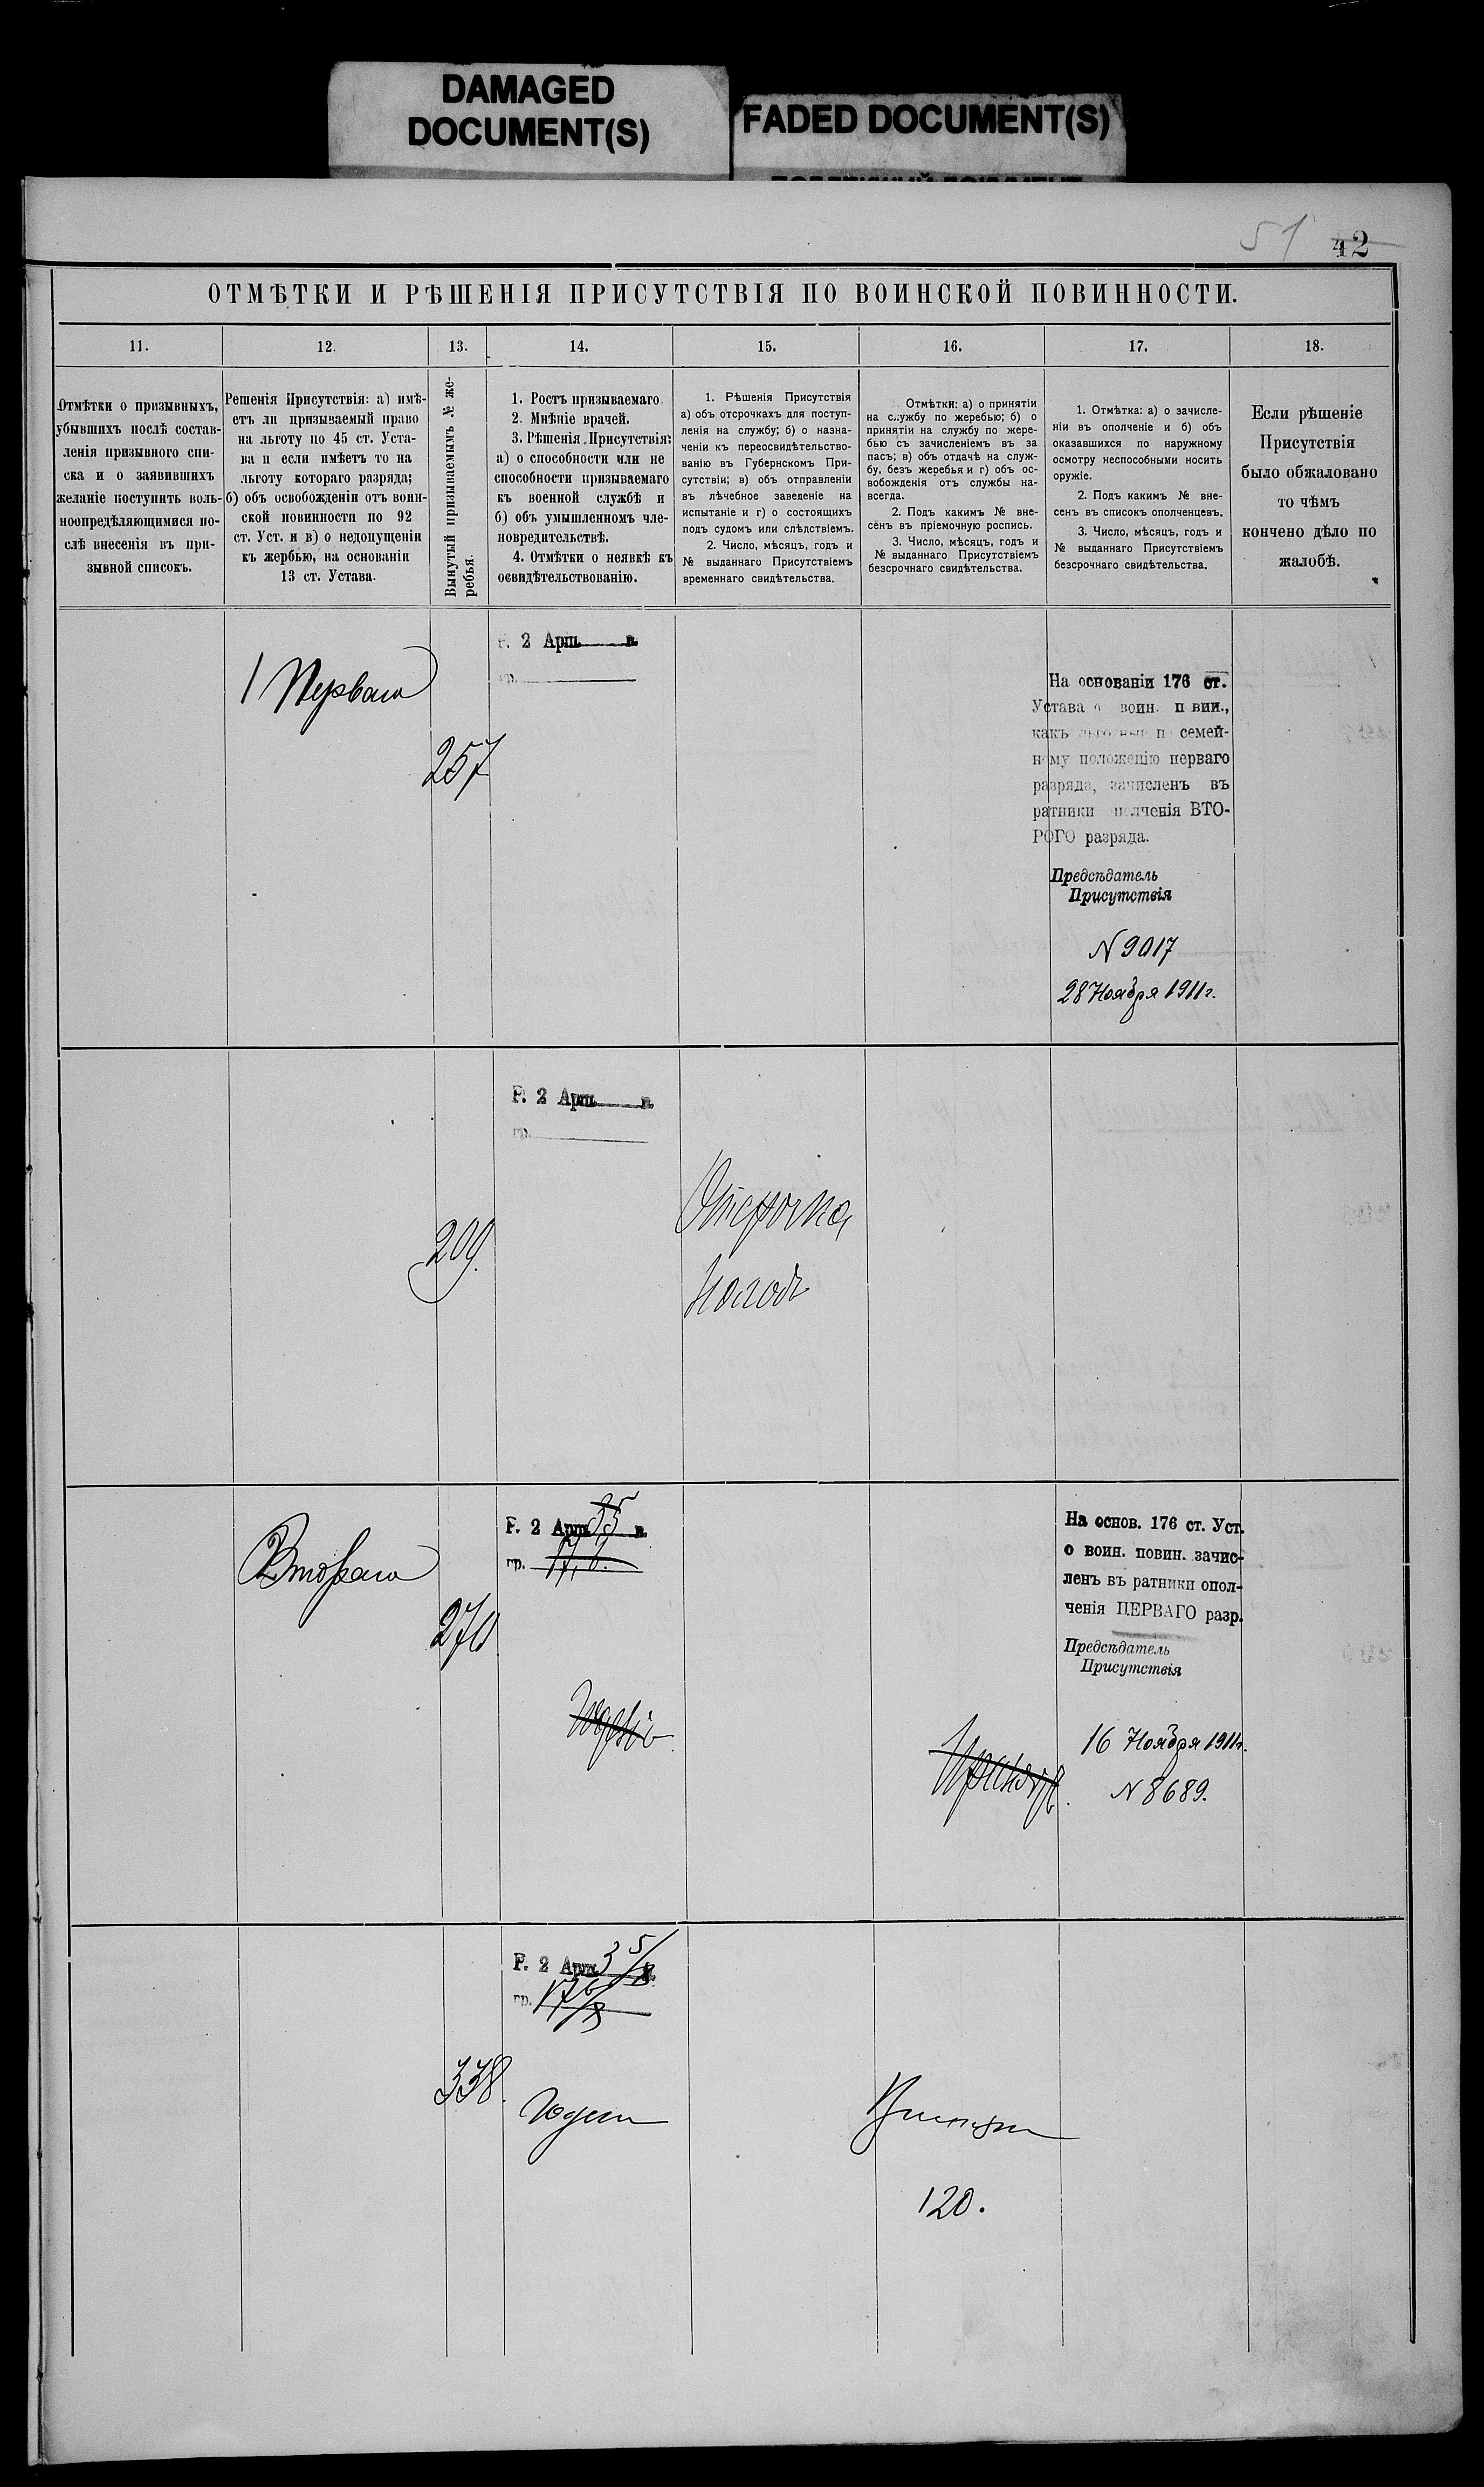 DAMAGED
DOCUMENT(S)
FADED DOCUMENT(S)
51 42
ОТМѢТКИ И РѢШЕНІЯ ПРИСУТСТВІЯ ПО ВОИНСКОЙ ПОВИННОСТИ.
11. 12. 13. 14. 15. 16. 17. 18.
Отмѣтки о призывныхъ,
убывшихъ послѣ состав-
ленія призывного спи-
ска и о заявившихъ
желаніе поступить воль-
ноопредѣляющимися по-
слѣ внесенія въ при-
зывной списокъ.
Рѣшенія Присутствія: а) имѣ-
етъ ли призываемый право
на льготу по 45 ст. Уста-
ва и если имѣетъ то на
льготу котораго разряда;
б) объ освобожденіи отъ воин-
ской повинности по 92
ст. Уст. и в) о недопущеніи
къ жербью, на основаніи
13 ст. Устава.
Вынутый призываемымъ № же-
ребья.
1. Ростъ призываемаго
2. Мнѣніе врачей.
3. Рѣшенія Присутствія:
а) о способности или не
способности призываемаго
къ военной службѣ и
б) объ умышленномъ чле-
новредительствѣ.
4. Отмѣтки о неявкѣ къ
освидѣтельствованію.
1. Рѣшенія Присутствія
а) объ отсрочкахъ для поступ-
ленія на службу; б) о назна-
ченіи къ переосвидѣтельство-
ванію въ Губернскомъ При-
сутствіи; в) объ отправленіи
въ лѣчебное заведеніе на
испытаніе и г) о состоящихъ
подъ судомъ или слѣдствіемъ.
2. Число, мѣсяцъ, годъ и
№ выданнаго Присутствіемъ
временнаго свидѣтельства.
Отмѣтки: а) о принятіи
на службу по жеребью; б) о
принятіи на службу по жере-
бью съ зачисленіемъ въ за
пасъ; в) объ отдачѣ на служ-
бу, безъ жеребья и г) объ ос-
вобожденія отъ службы на-
всегда.
2. Подъ какимъ № вне-
сёнъ въ пріемочную роспись.
3. Число, мѣсяцъ, годъ и
№ выданнаго Присутствіемъ
безсрочнаго свидѣтельства.
1. Отмѣтка: а) о зачисле-
ніи въ ополченіе и б) объ
оказавшихся по наружному
осмотру неспособными носить
оружіе.
2. Подъ какимъ № вне-
сенъ въ списокъ ополченцевъ.
3. Число, мѣсяцъ, годъ и
№ выданнаго Присутствіемъ
безсрочнаго свидѣтельства.
Если рѣшеніе
Присутствія
было обжаловано
то чѣмъ
кончено дѣло по
жалобѣ.
1 Перваго
257
Р. 2 Арш. в.
гр.
На основаніи 176 ст.
Устава о воин. п вин.,
какъ льготный п семей-
ному положенію перваго
разряда, зачисленъ въ
ратники полченія ВТО-
РОГО разряда.
Предсѣдатель
Присутствія
N 9017
28 Ноября 1911 г.
Р. 2 Арш. в.
гр.
209.
Отсрочка
на годъ
Второго
270
Р. 2 Арш. в.
гр.
Годенъ
Принятъ.
На основ. 176 ст. Уст.
о воин. повин. зачис-
ленъ въ ратники опол-
ченія ПЕРВАГО разр.
Предсѣдатель
Присутствія
16 Ноября 1911 г.
N 8689.
Р. 2 Арш. 3 5/8 в.
гр. 17 6/8
338.
Годен
Принят
120.